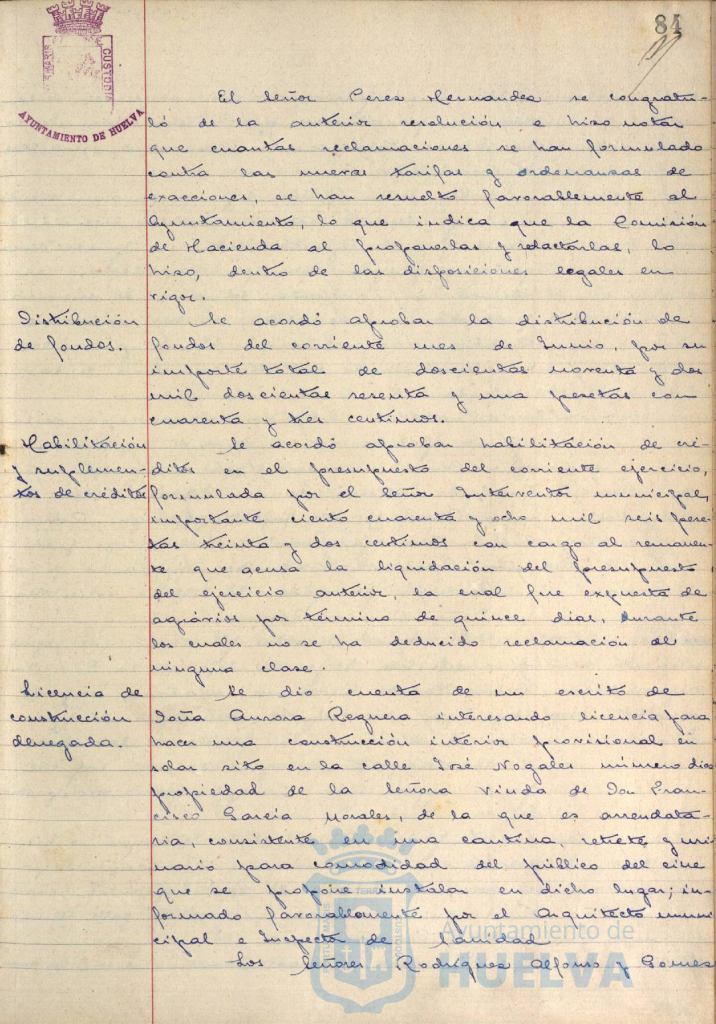 84
CUSTODIA
AYUNTAMIENTO DE HUELVA
El Señor Perez Hernandez se congratu-
ló de la anterior resolución e hizo notar
que cuantas reclamaciones se han formulado
contra las nuevas tarifas y ordenanzas de
exacciones, se han resuelto favorablemente al
Ayuntamiento, lo que indica que la Comisión
de Hacienda al proponerlas y redactarlas, lo
hizo, dentro de las disposiciones legales en
vigor.
Distribución
de fondos.
Se acordó aprobar la distribución de
fondos del corriente mes de Junio, por su
importe total de doscientas noventa y dos
mil doscientas sesenta y una pesetas con
cuarenta y tres centimos.
Habilitación
y suplemen-
tos de créditos
Se acordó aprobar habilitación de cré-
ditos en el presupuesto del corriente ejercicio,
formulada por el Señor Interventor municipal,
importante ciento cuarenta y ocho mil seis pese-
tas treinta y dos centimos con cargo al remanen-
te que acusa la liquidación del presupuesto
del ejercicio anterior, la cual fue expuesta de
agrávios por término de quince dias, durante
los cuales no se ha deducido reclamación de
ninguna clase.
Licencia de
construcción
denegada.
Se dio cuenta de un escrito de
Doña Aurora Requera interesando licencia para
hacer una construcción interior provisional en
solar sito en la calle José Nogales número dies
propiedad de la Señora Viuda de Don Fran-
cisco García Morales, de la que es arrendata-
ria, consistente en una cantina, retrete y uri-
nario para comodidad del público del cine
que se propone instalar en dicho lugar; in-
formado favorablemente por el Arquitecto muni-
cipal e Inspector de Sanidad
Los Señores Rodríguez Alfonso y Gomez
Ayuntamiento de
HUELVA